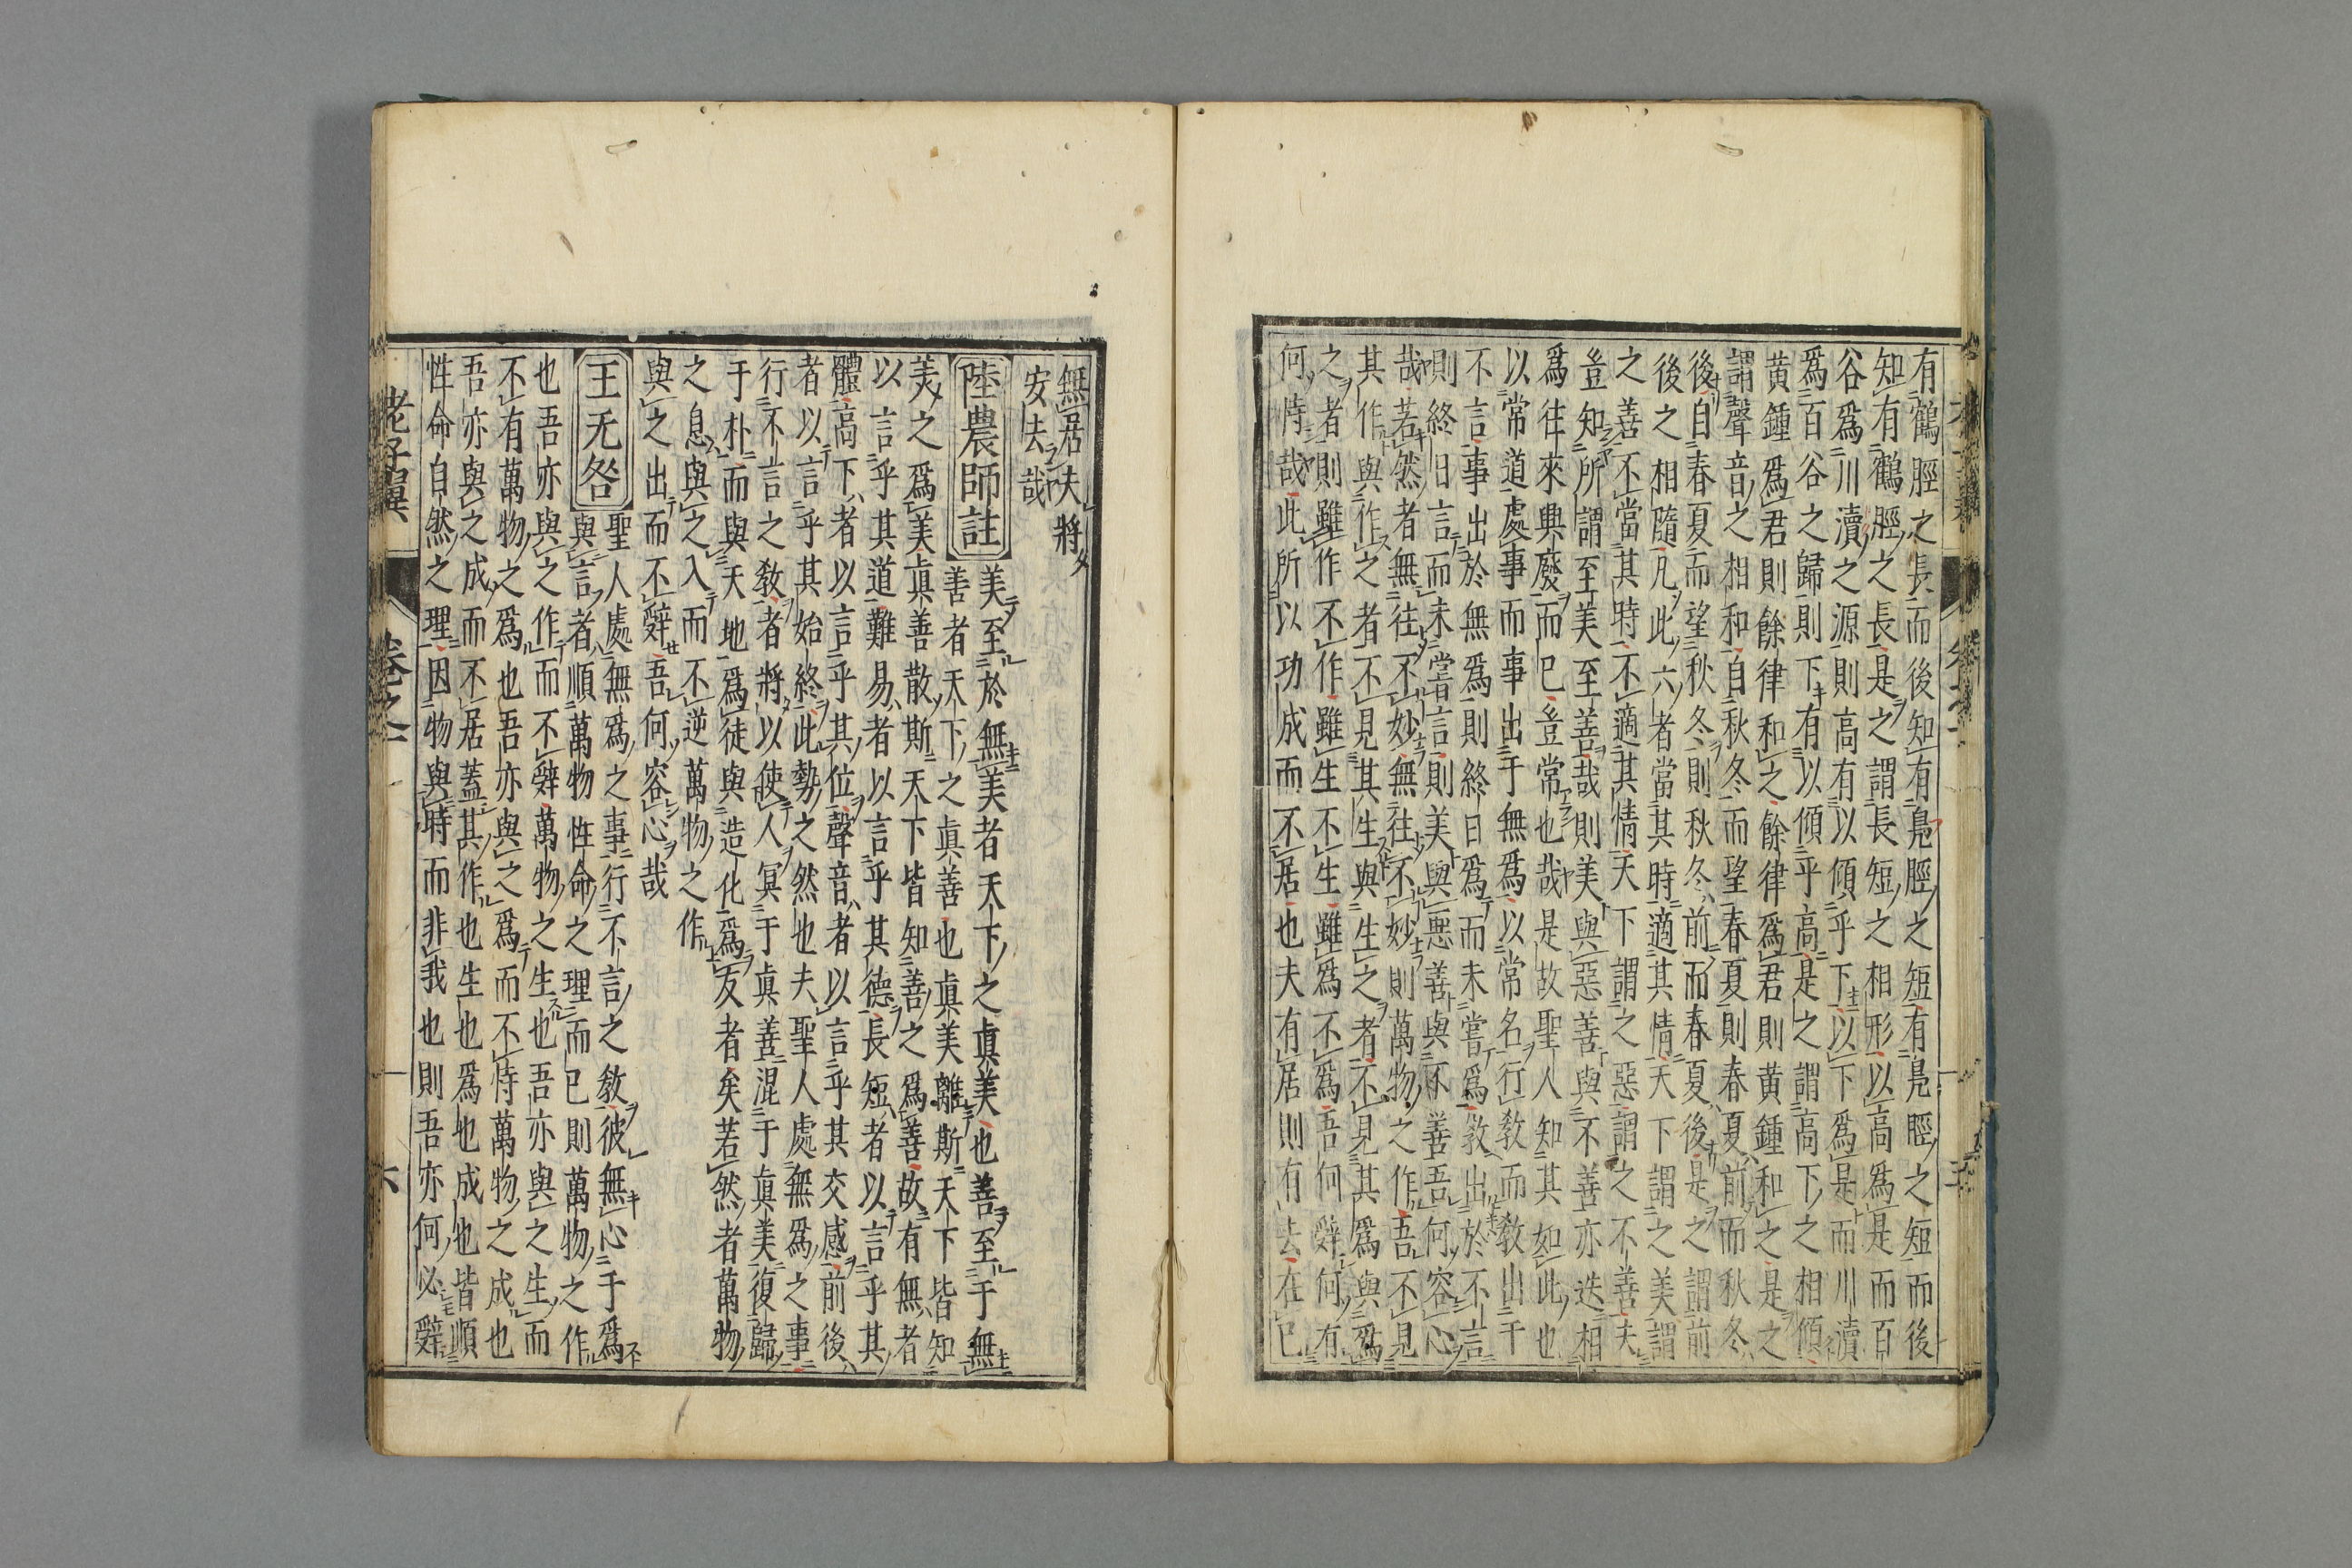 有鶴脛之長而後知有鳧脛之短有鳧脛之短而後
知有鶴脛之長是之謂長短之相形以高爲是而百
谷爲川瀆之源則高有以傾乎下以下爲是而川瀆
爲百谷之歸則下有以傾乎高是之謂高下之相傾
黄鍾爲君則餘律和之餘律爲君則黄鍾和之是之
謂聲音之相和自秋冬而望春夏則春夏前而秋冬
後自春夏而望秋冬則秋冬前而春夏後是之謂前
後之相隨凡此六者當其時適其情天下謂之美謂
之善不當其時不適其情天下謂之惡謂之不善夫
豈知所謂至美至善哉則美與惡善與不善亦迭相
爲往來興廢而已豈常也哉是故聖人知其如此也
以常道處事而事出于無爲以常名行敎而敎出于
不言事出於無爲則終日爲而未嘗爲敎出於不言
則終日言而未嘗言則美與惡善與不善吾何容心
哉若然者無往不妙無往不妙則萬物之作吾不見
其作與作之者不見其生與生之者不見其爲與爲
之者則雖作不作雖生不生雖爲不爲吾何辭何有
何恃哉此所以功成而不居也夫有居則有去在已
無居夫將
安去哉
陸農師註
美至於無美者天下之眞美也善至于無
善者天下之眞善也眞美離斯天下皆知
美之爲美眞善散斯天下皆知善之爲善故有無者
以言乎其道難易者以言乎其德長短者以言乎其
體高下者以言乎其位聲音者以言乎其交感前後
者以言乎其始終此勢之然也夫聖人處無爲之事
行不言之敎者將以使人冥于眞善混于眞美復歸
于朴而與天地爲徒與造化爲友者矣若然者萬物
之息與之入而不逆萬物之作
與之出而不辭吾何容心哉
王无咎
聖人處無爲之事行不言之敎彼無心于爲
與言者順萬物性命之理而已則萬物之作
也吾亦與之作而不辭萬物之生也吾亦與之生而
不有萬物之爲也吾亦與之爲而不恃萬物之成也
吾亦與之成而不居蓋其作也生也爲也成也皆順
性命自然之理因物與時而非我也則吾亦何必辭
老子翼
卷之一
六